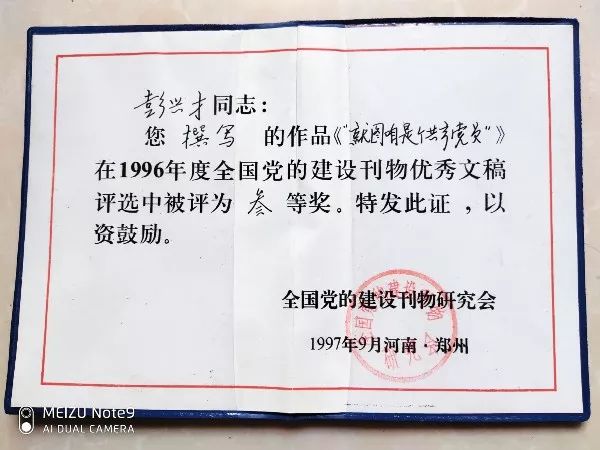 彭兴才同志：
您 撰写 的作品《"就图咱是个共产党员"》
在1996年度全国党的建设刊物优秀文稿
评选中被评为 叁 等奖。特发此证，以
资鼓励。
全国党的建设刊物研究会
1997年9月河南·郑州
全国党的建设刊物
研究会
MEIZU NOTE9
AI DUAL CAMERA